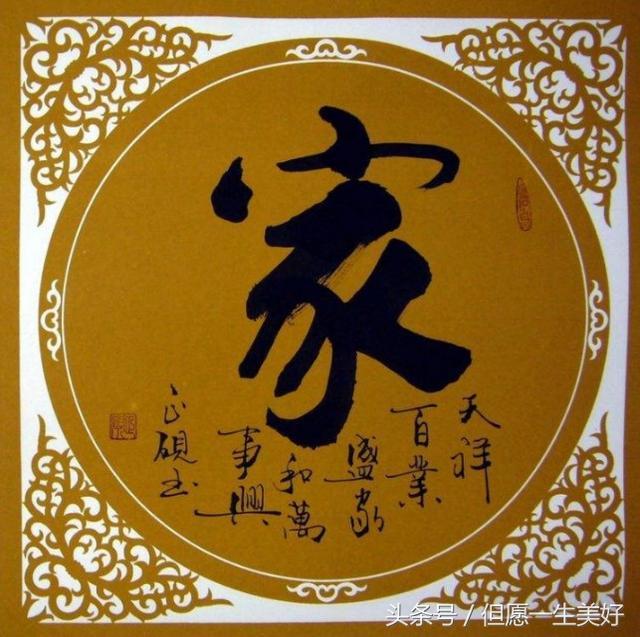 家
天祥
百業
盛家
和萬
事興
头条号 / 但愿一生美好